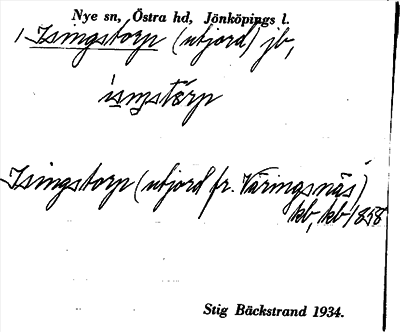 Nye sn, Östra hd, Jönköpings l.
1 Isingstorp (utjord) jb,
ısıŋstórp
Isingstorp (utjord fr. Väringsnäs)
kb, kb 1858
Stig Bäckstrand 1934.